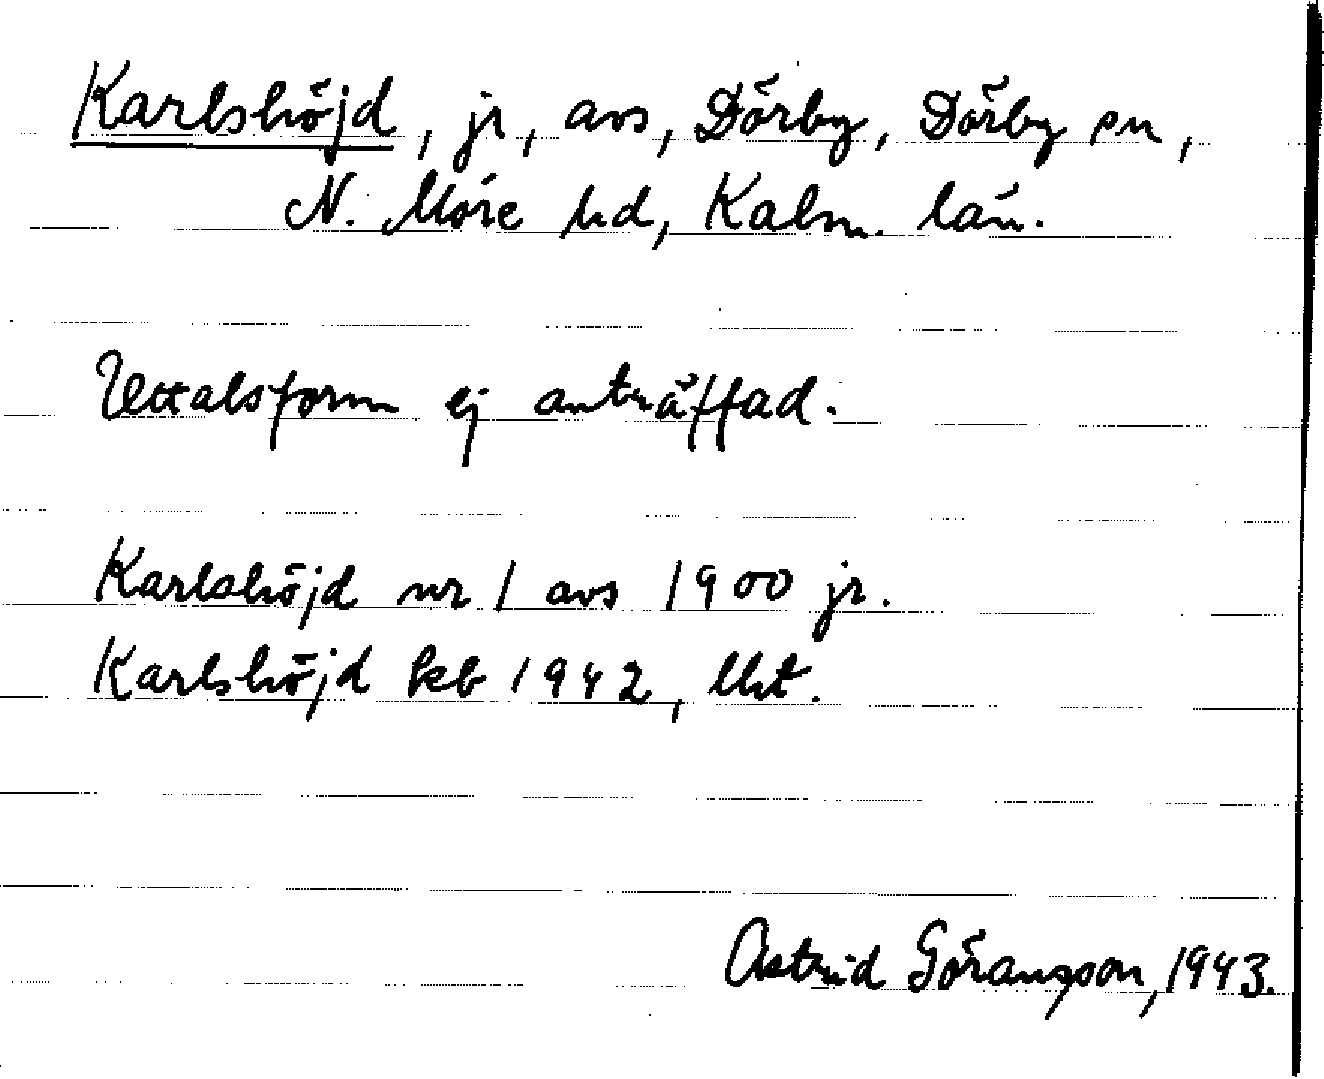 Karlshöjd, jr, avs, Dörby, Dörby sn,
N. Möre hd, Kalm. län.
Uttalsform ej anträffad.
Karlshöjd nr 1 avs 1900 jr.
Karlshöjd kb 1942, Uht.
Astrid Göransson, 1943.